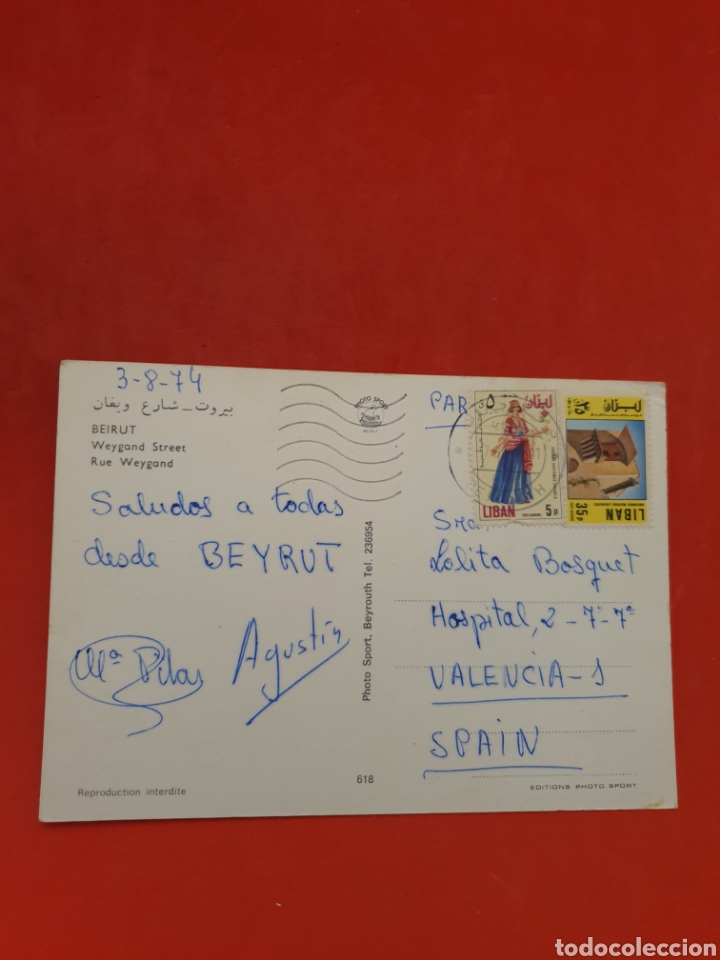 3-8-74
بيروت - شارع ويغان
BEIRUT
Weygand Street
Rue Weygand
Saludos a todas
desde BEYRUT
Mª Pilar
Agustín
Reproduction interdite
Photo Sport, Beyrouth Tel. 236954
618
PHOTO SPORT
PAR
لبنان
LIBAN
5 P
لبنان
LIBAN
35 P
Sra.
Lolita Bosquet
Hospital, 2-7-7ª
VALENCIA-1
SPAIN
EDITIONS PHOTO SPORT
todocoleccion